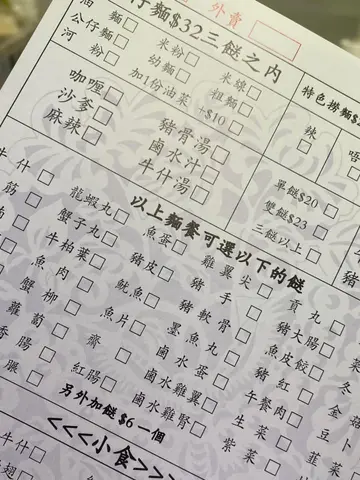 外賣
仔麵$32三餸之內
油麵□ 米粉□ 米線□
公仔麵□ 幼麵□ 粗麵□
河粉□ 加1份油菜+$10□
特色撈麵$
辣□
唔
咖喱□ 豬骨湯□
沙爹□ 鹵水汁□
麻辣□ 牛什湯□
單餸$20□
雙餸$23□
三餸以上□
以上麵餐可選以下的餸
牛什□ 龍蝦丸□ 魚蛋□ 雞翼尖□ 貢丸□
筋□ 蟹子丸□ 豬皮□ 豬手□ 豬大腸□ 菜
牛柏葉□ 魷魚□ 豬軟骨□ 魚皮餃□ 冬
魚肉□ 魚片□ 墨魚丸□ 豬紅□ 金
蟹柳□ 齋□ 鹵水蛋□ 午餐肉□ 豆卜
蘿蔔□ 紅腸□ 鹵水雞翼□ 生菜□
香腸□ 鹵水雞腎□ 紫菜□
另外加餸$6一個
<<<小食>>>
牛什□
翅